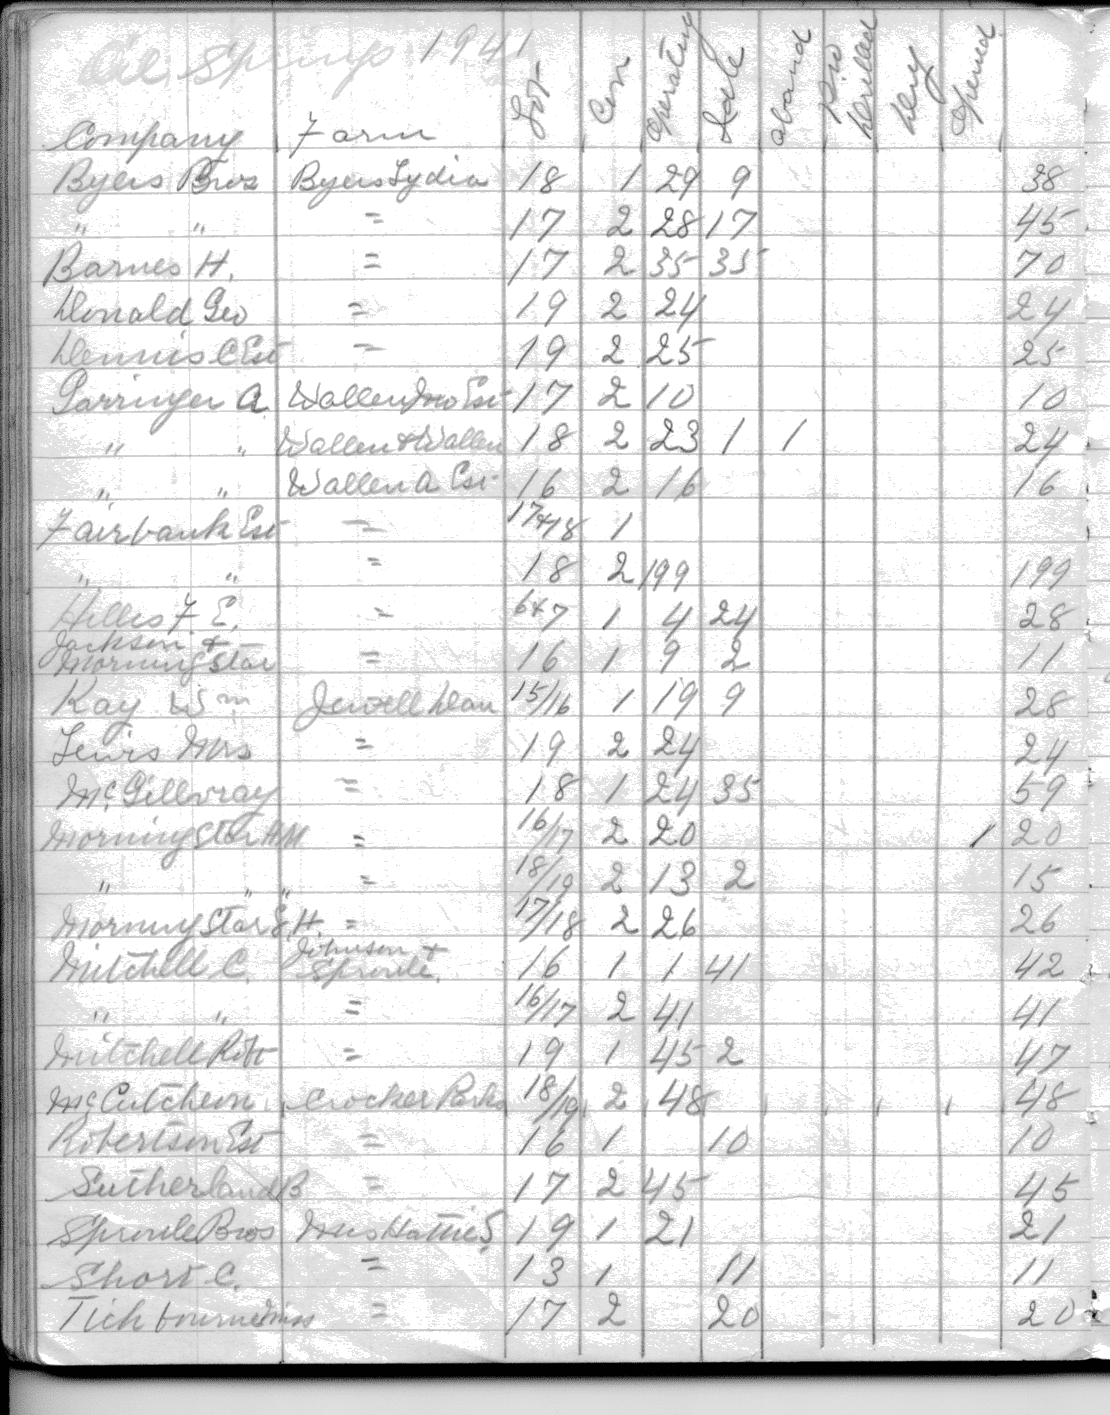 Oil Springs 1941
Company Farm Lot Con Operating Idle Aband Drilled Dry Opened
Byers Bros Byers Lydia 18 1 29 9 38
" " = 17 2 28 17 45
Barnes H. = 17 2 35 35 70
Donald Geo = 19 2 24 24
Dennis C Est = 19 2 25 25
Parringer A Wallen Jno Est 17 2 10 10
" " Wallen & Wallen 18 2 23 1 1 24
" " Wallen A Est 16 2 16 16
Fairbank Est = 17+18 1
" " = 18 2 199 199
Hillis F E. = 6+7 1 4 24 28
Jackson &
Morningstar = 16 1 9 2 11
Kay Wm Jewell Dan 15/16 1 19 9 28
Lewis Mrs = 19 2 24 24
McGillvray = 18 1 24 35 59
Morningstar = 16/17 2 20 1 20
" " " = 18/19 2 13 2 15
Morningstar E. H. = 17/18 2 26 26
Mitchell C. Johnson + Sproule. 16 1 1 41 42
" " = 16/17 2 41 41
Mitchell Robt = 19 1 45 2 47
McCutcheon Crocker Parks 18/19 2 48 48
Robertson Est = 16 1 10 10
Sutherland B = 17 2 45 45
Sproule Bros Mrs Hattie S. 19 1 21 21
Short C. = 13 1 11 11
Tichbourne Miss = 17 2 20 20